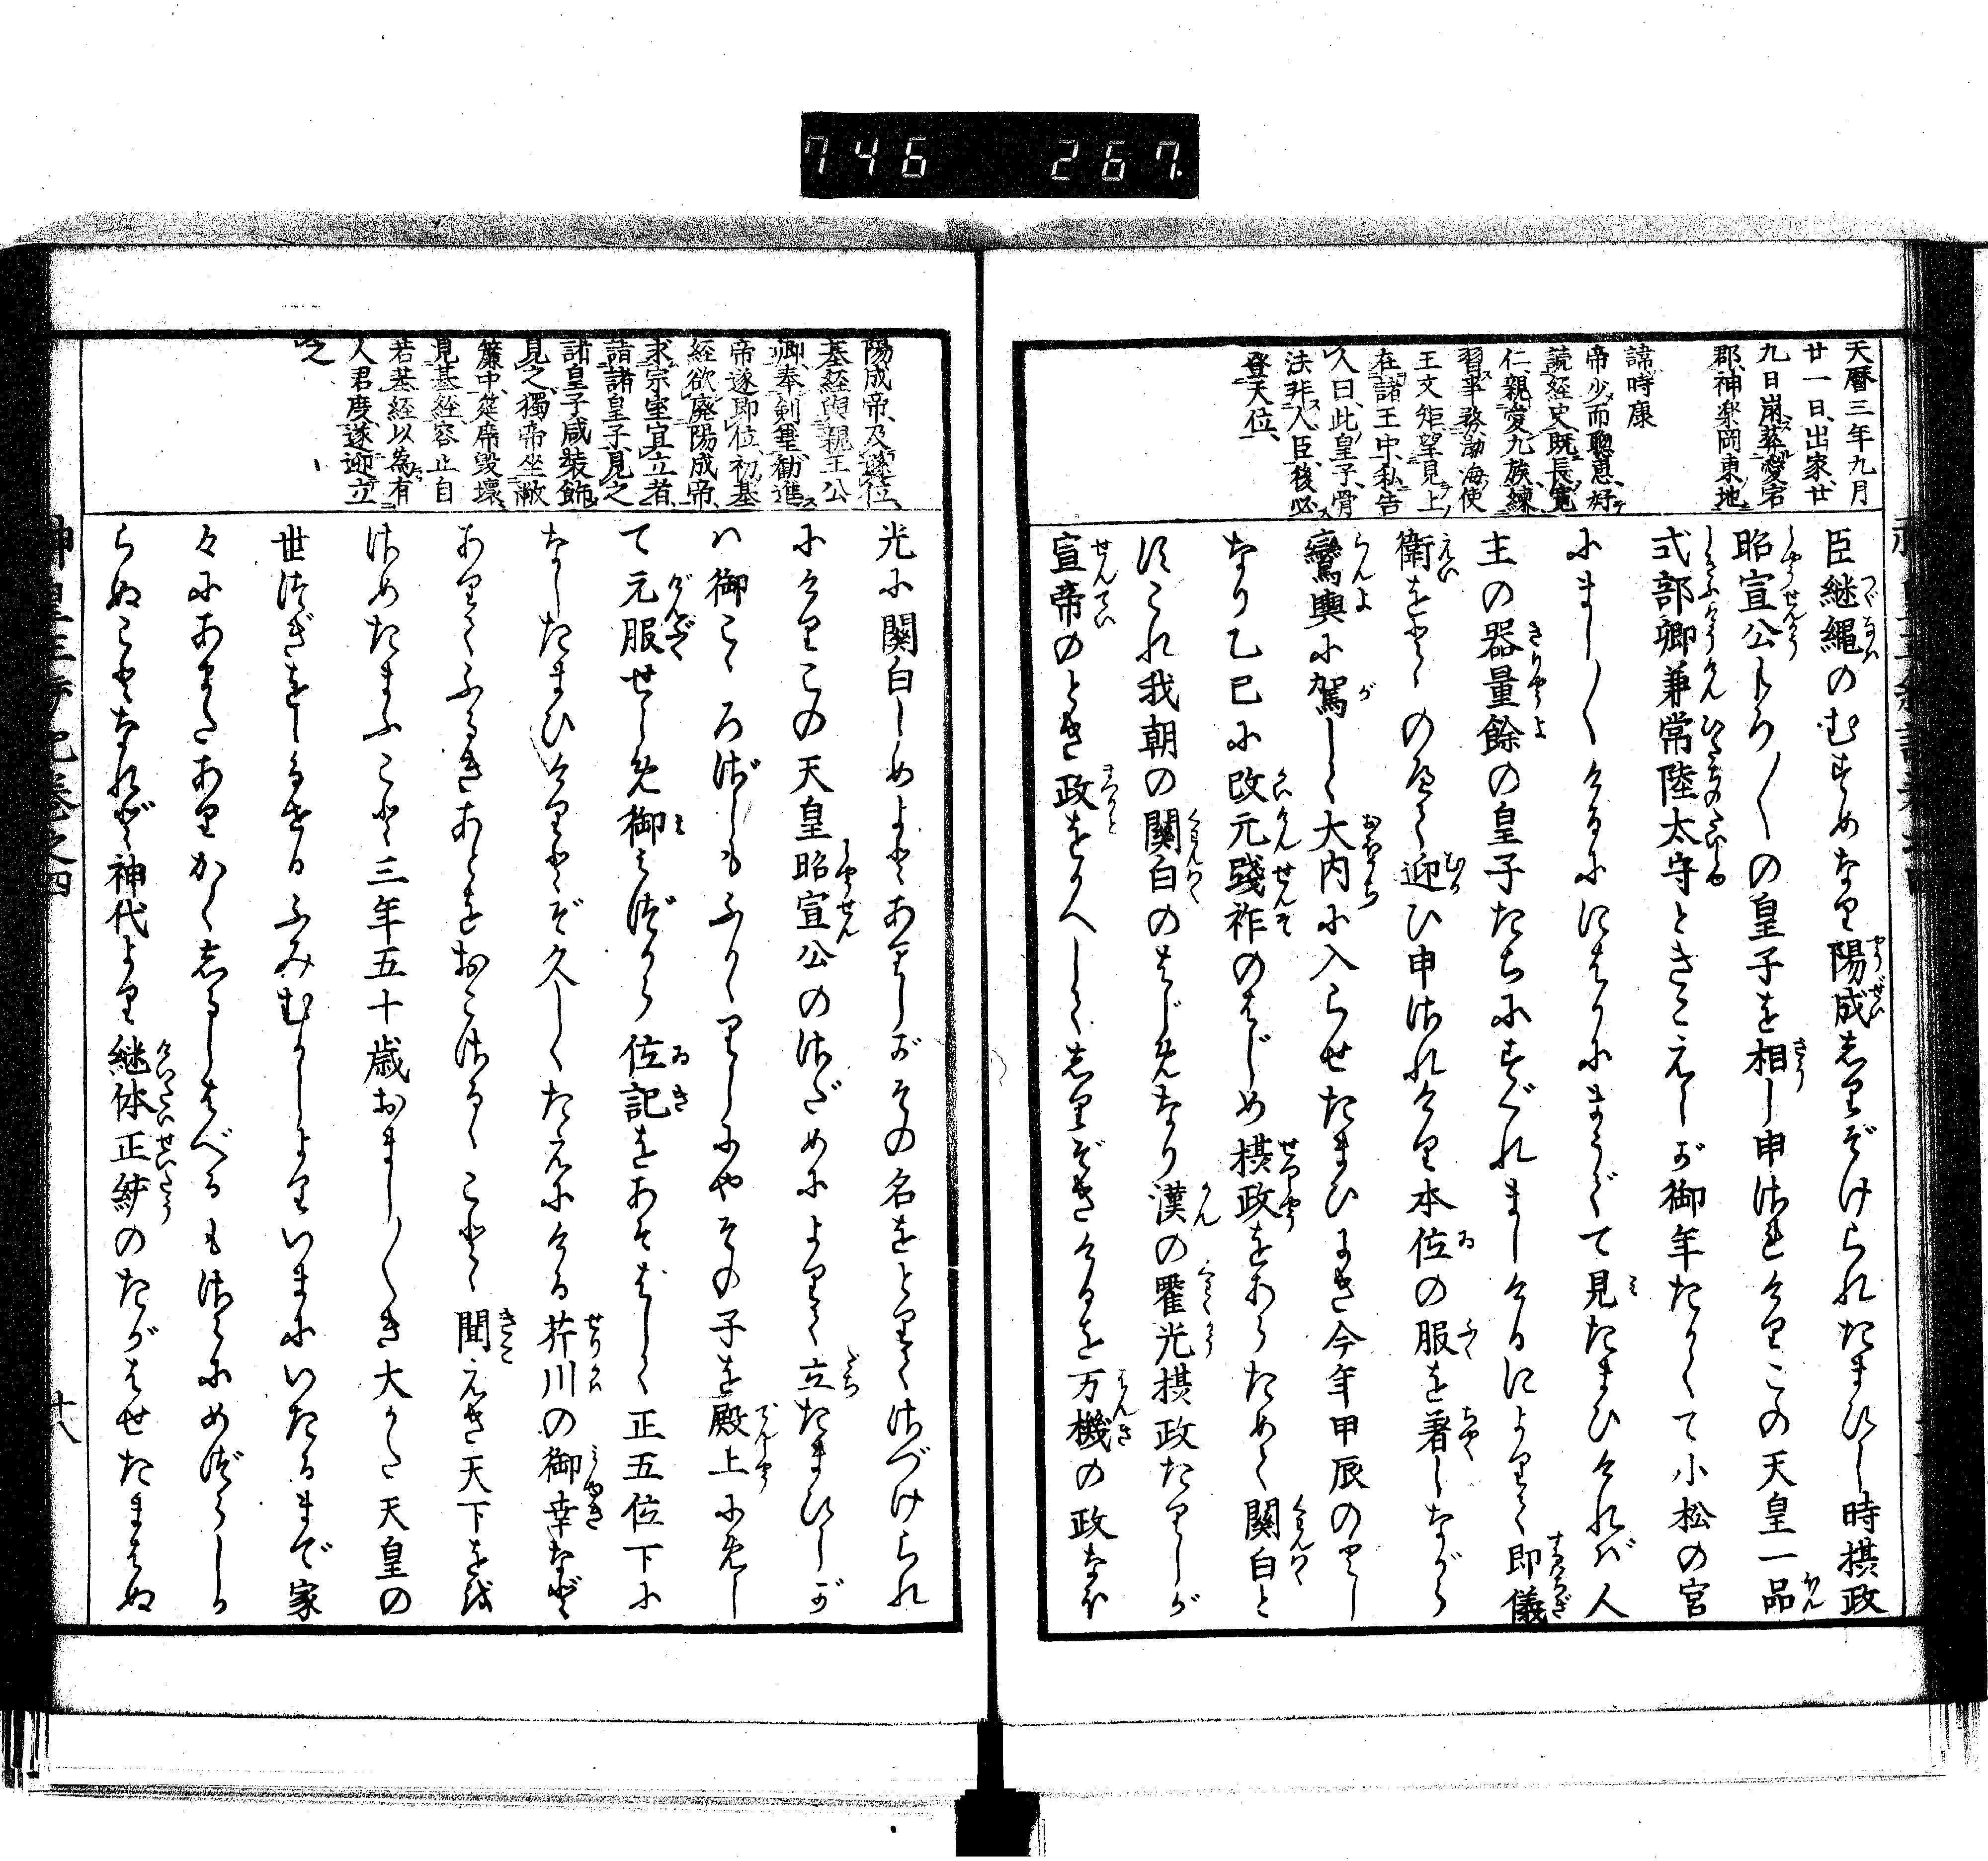 746 267
天暦三年九月
廿一日、出家、廿
九日崩葬愛宕
郡、神楽岡東地
諱時康
帝少而聰恵、好
読経史、既長寛
仁、親愛九族、練
習事務、渤海使
王文矩望見上
在諸王中、私告
人曰、此皇子、骨
法非人臣、後必
登天位、
臣継縄のむすめなり陽成しりぞけられたまひし時摂政
昭宣公もろ〳〵の皇子を相し申されけりこの天皇一品
式部卿兼常陸太守ときこえしが御年たかくて小松の宮
にまし〳〵けるににはかにまうでて見たまひければ人
主の器量餘の皇子たちにすぐれましけるによりて即儀
衛をとゝのへて迎ひ申されけり本位の服を著しながら
鸞輿に駕して大内に入らせたまひにき今年甲辰のとし
なり乙巳に改元踐祚のはじめ摂政をあらためて関白と
すこれ我朝の関白のはじめなり漢の霍光摂政たりしが
宣帝のとき政をかへしてしりぞきけるを万機の政なほ
陽成帝、及遜位、
基経与親王公
卿、奉剣璽、勧進
帝遂即位、初基
経欲廃陽成帝、
求宗室宜立者、
詣諸皇子見之
諸皇子咸装飾
見之、獨帝坐敝
簾中、筵席毀壞、
見基経、容止自
若、基経以為有
人君度、遂迎立
之
光に関白しめよとありしがその名をとりてさづけられ
にけりこの天皇昭宣公のさだめによりて立たまひしが
ハ御こゝろざしもふかくりしにやその子を殿上にめし
て元服せしめ御みづから位記をあそばして正五位下に
なしたまひけりとぞ久しくたえにける芹川の御幸など
ありてふるきあとをおこさるゝことゝ聞えき天下を治
さめたまふこと三年五十歳おまし〳〵き大かた天皇の
世つぎをしるせるふみむかしよりいまにいたるまで家
々にあまたありかくしるしはべるもさらにめづらしか
らぬことなれど神代より継体正統のたがはせたまはぬ
神皇正統記巻之四
十八